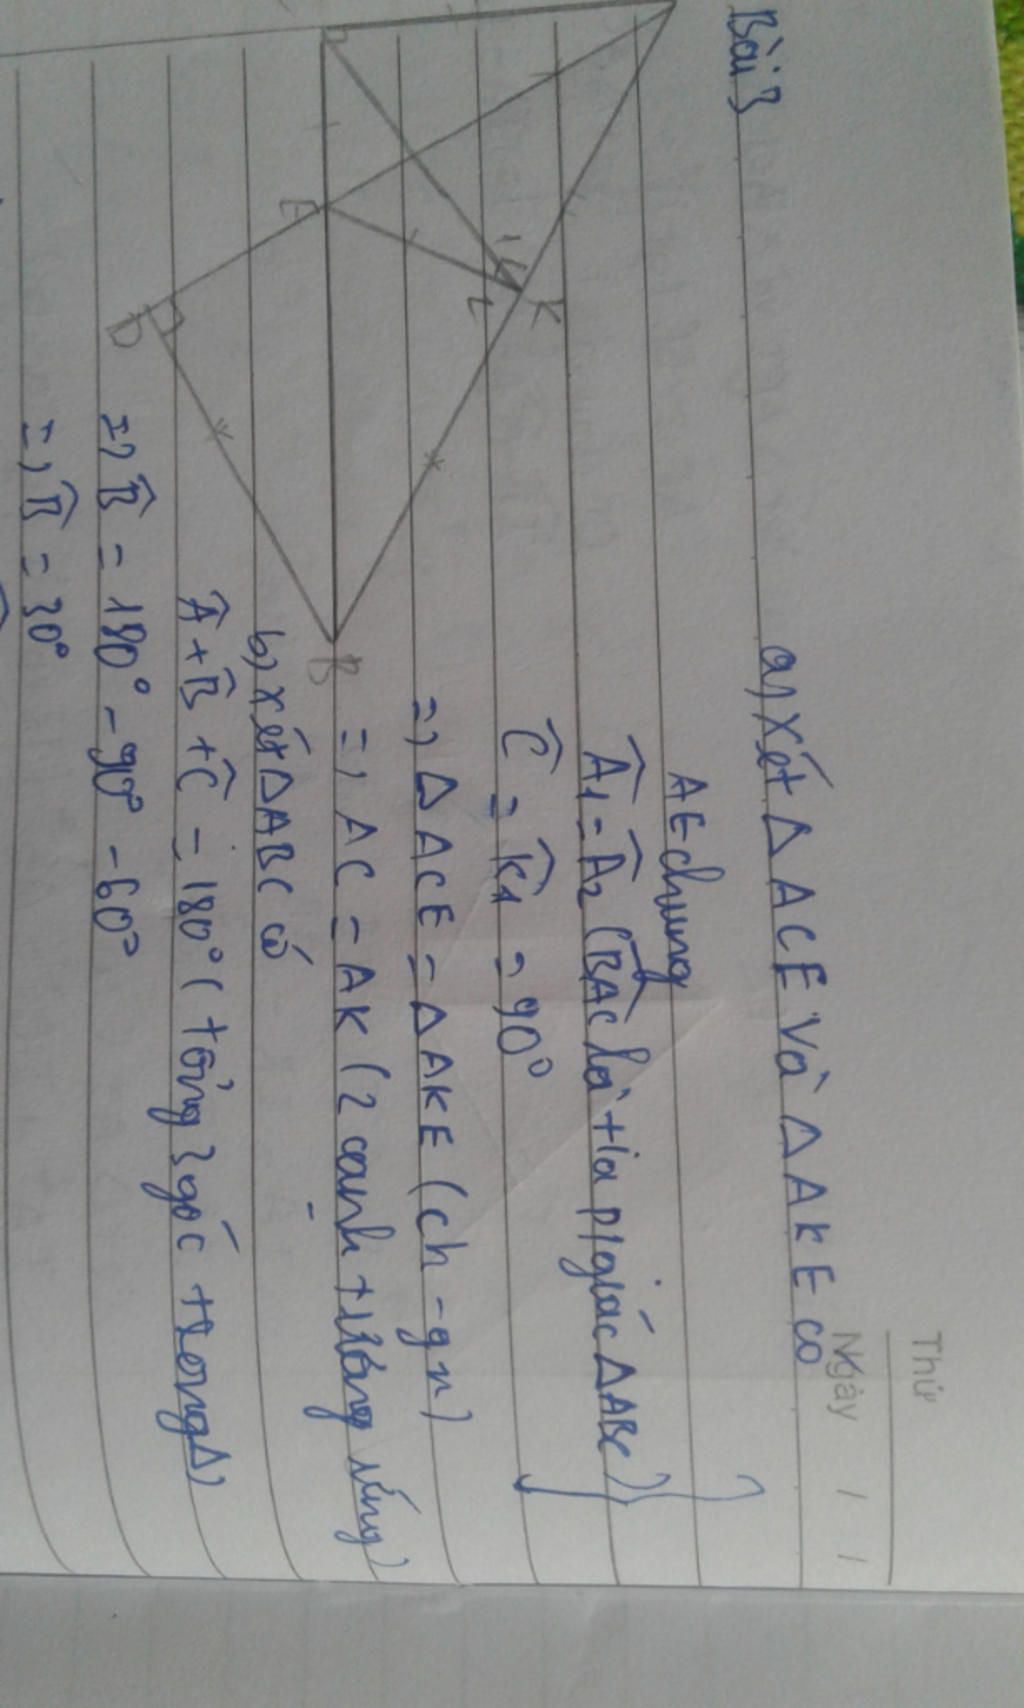 Thứ
Ngày / /
Bài 3
a) Xét Δ ACE Và Δ AKE có
AE chung
Â1 = Â2 (BÂC là tia p/giác Δ ABC)
Ĉ = K̂1 = 90°
=) Δ ACE = Δ AKE (ch - gn)
=) AC = AK (2 cạnh tương ứng)
b) Xét Δ ABC có
Â + B̂ + Ĉ = 180° (tổng 3 góc trong Δ)
=) B̂ = 180° - 90° - 60°
=) B̂ = 30°
K
1
2
E
D
B